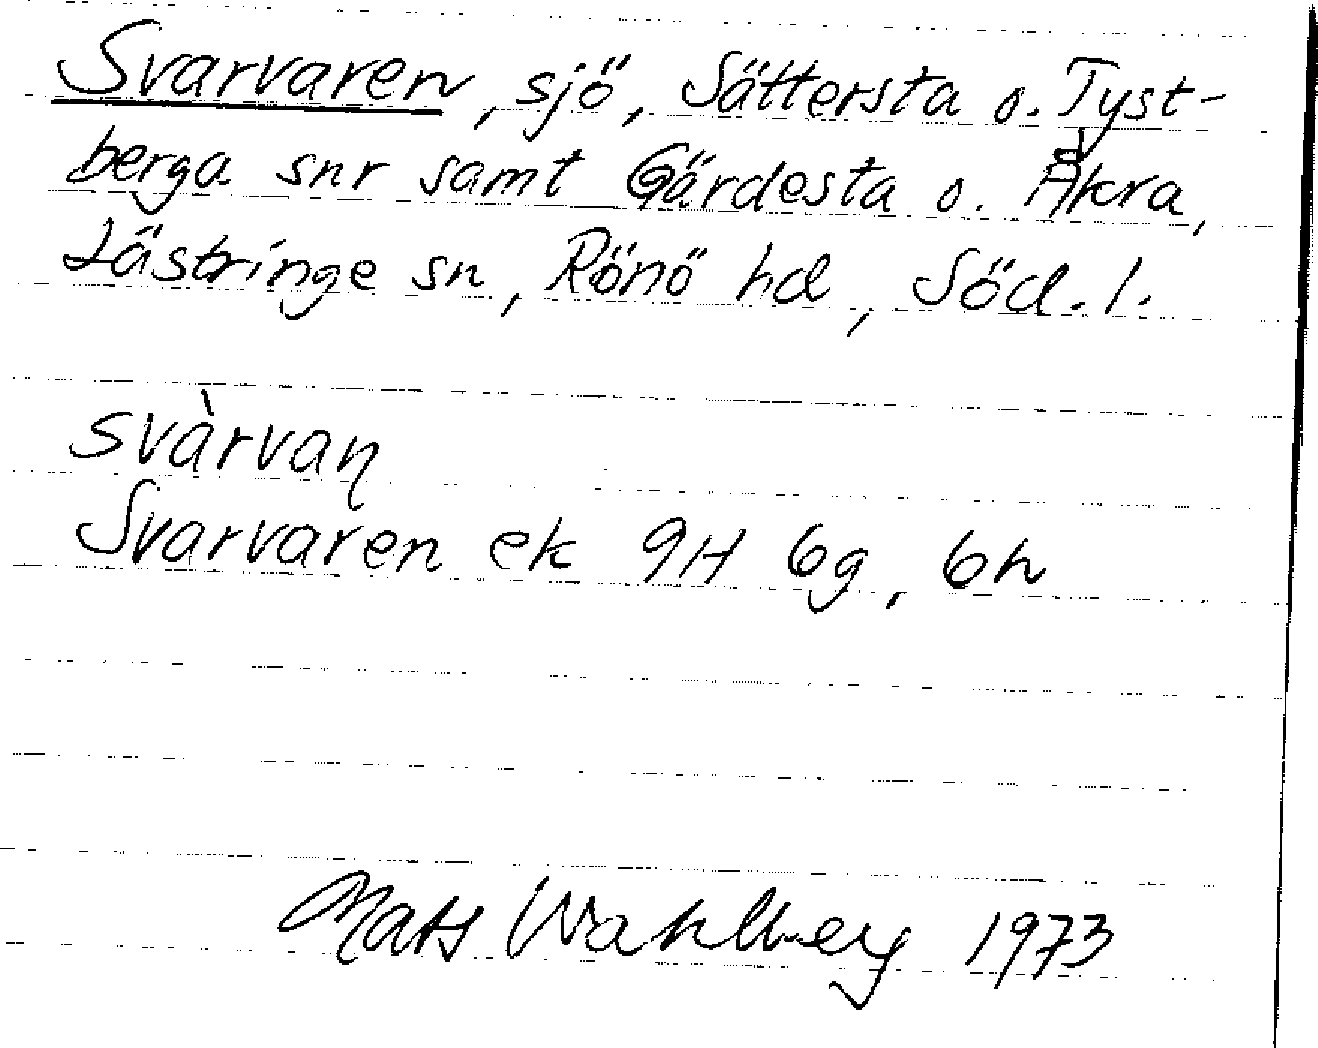 Svarvaren, sjö, Sättersta o. Tyst-
berga snr samt Gärdesta o. Åkra,
Lästringe sn, Rönö hd, Söd. l.
svàrvaṇ
Svarvaren ek 9H 6g, 6h
Mats Wahlberg 1973